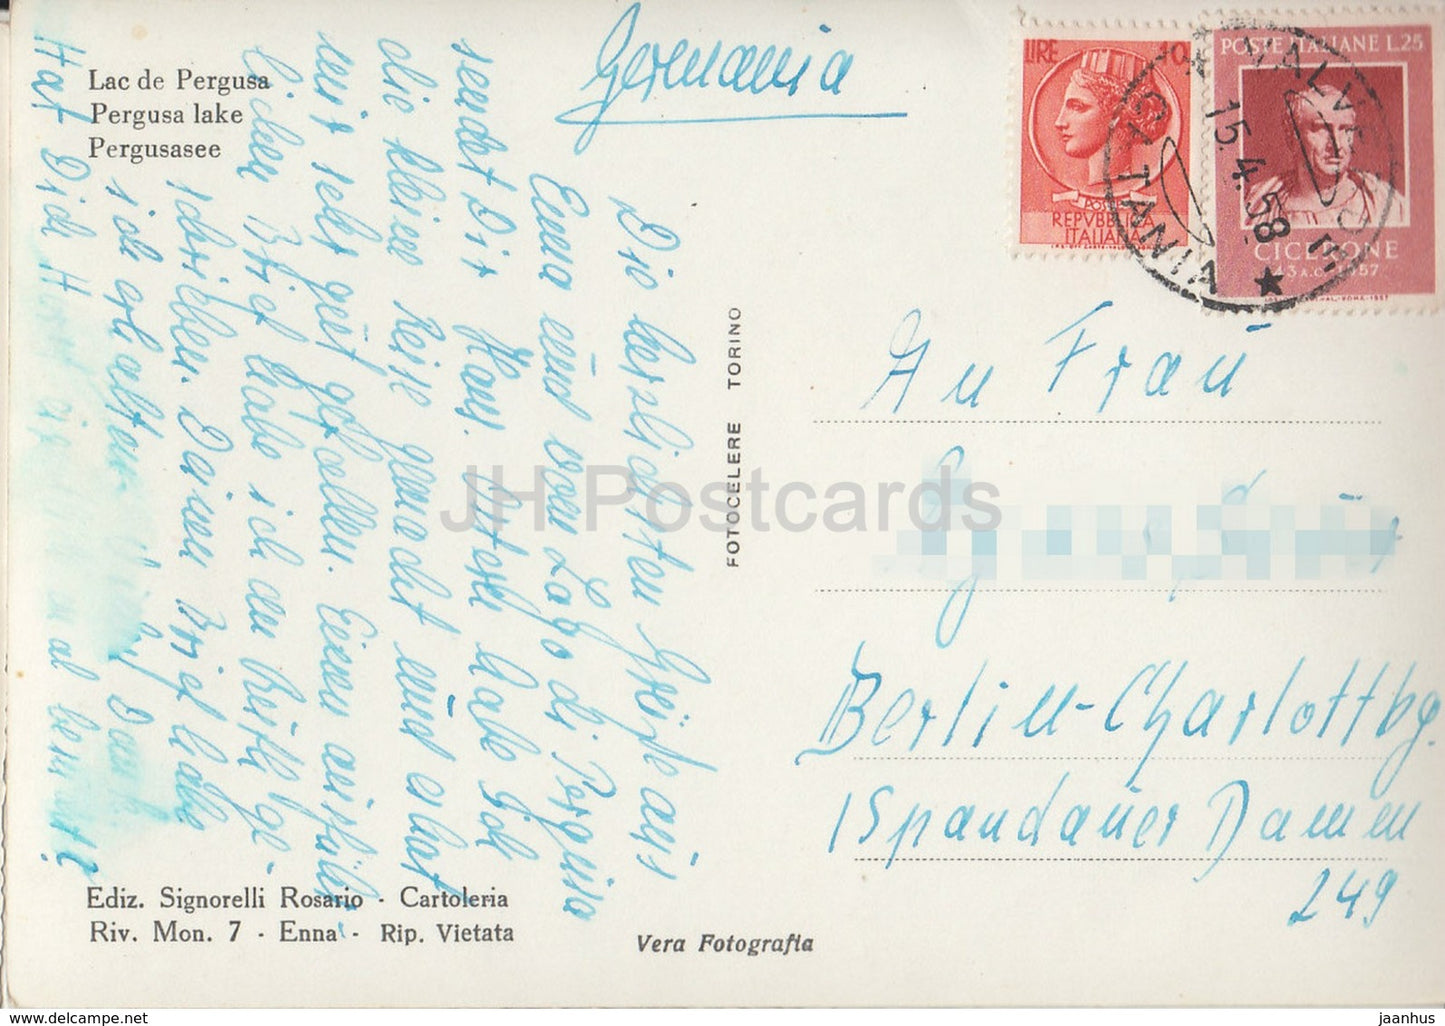 Lac de Pergusa
Pergusa lake
Pergusasee
Germania
LIRE 10
REPVBBLICA
ITALIANA
POSTE ITALIANE L.25
CICERONE
CATANIA
15.4.58
Die herzlichsten Grüße aus
Enna und vom Lago di Pergusa
sendet Dir Hans. Ostern habe ich
die kleine Reise gemacht und es hat
mir sehr gut gefallen. Einen ausführ-
lichen Brief habe ich an ge-
schrieben. Deinen Brief habe
ich erhalten.
Hat Dich
FOTOCELERE TORINO
An Frau
Berlin-Charlottbg.
Spandauer Damm
249
Ediz. Signorelli Rosario - Cartoleria
Riv. Mon. 7 - Enna - Rip. Vietata
Vera Fotografia
JH Postcards
www.delcampe.net
jaanhus